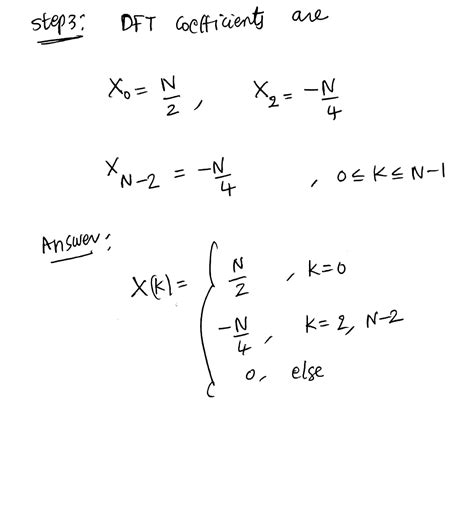 step3: DFT Coefficients are
X₀ = N/2 , X₂ = -N/4
X_{N-2} = -N/4 , 0 ≤ K ≤ N-1
Answer:
X(k) = { N/2 , K=0
-N/4 , K= 2, N-2
0, else